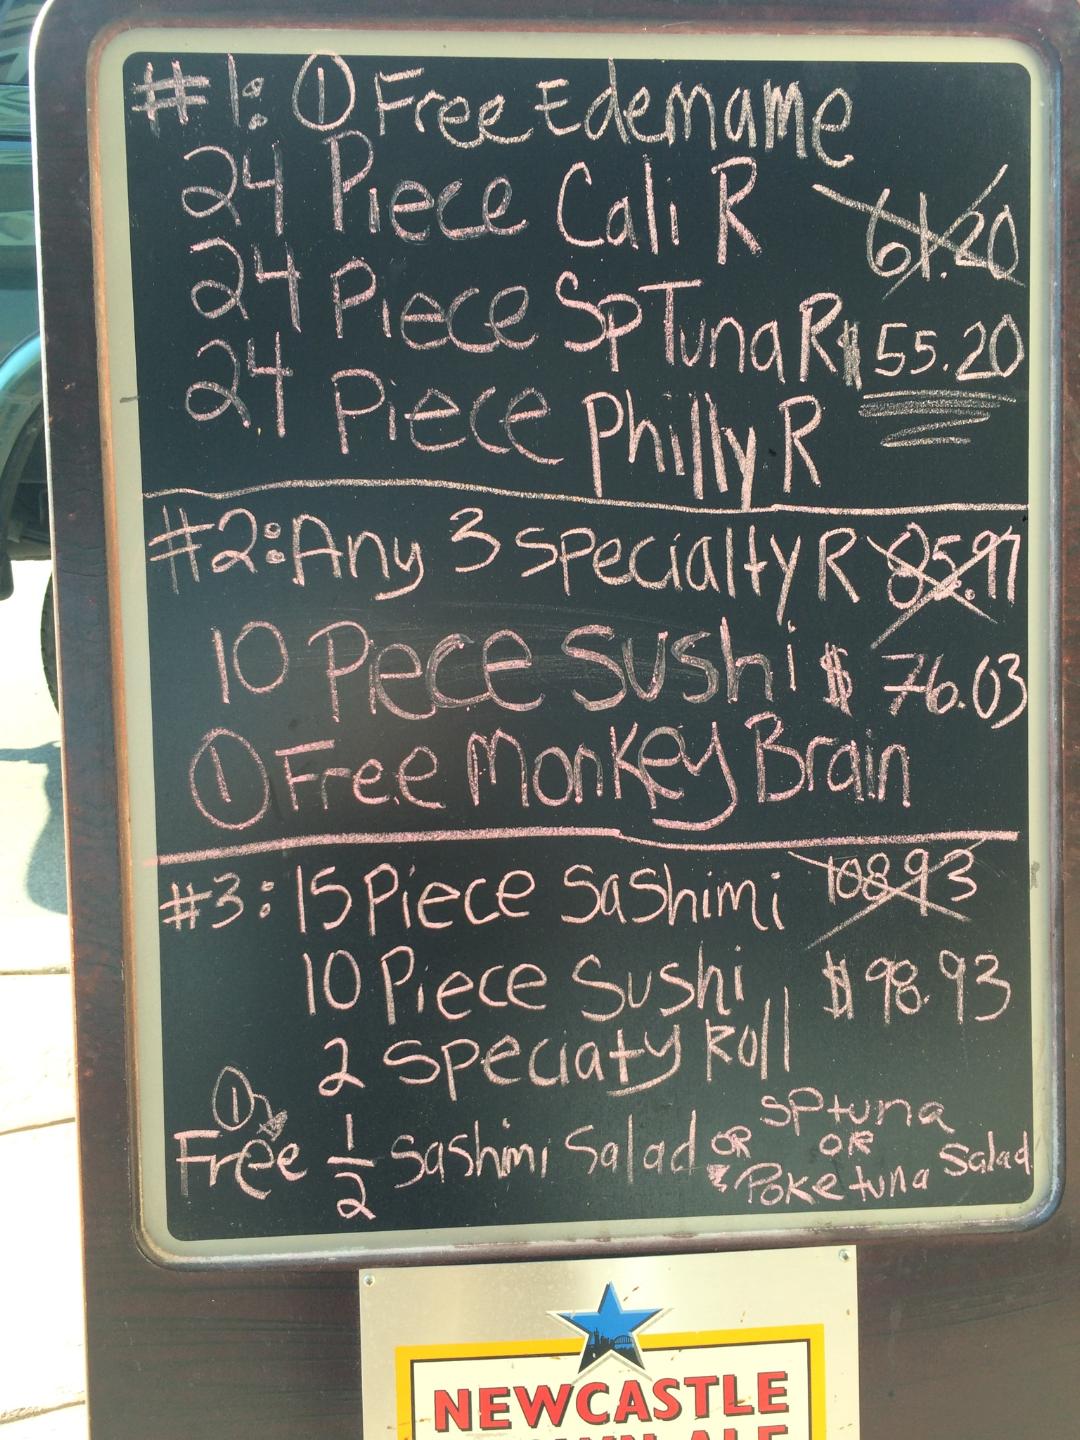 #1: ① Free Edemame
24 Piece Cali R 61.20
24 Piece Sp Tuna R $55.20
24 Piece Philly R
#2: Any 3 specialty R 85.97
10 Pece Sushi $76.03
① Free Monkey Brain
#3: 15 Piece Sashimi 108.93
10 Piece Sushi $98.93
2 Speciaty Roll
① Free 1/2 Sashimi Salad OR SPtuna OR Poke tuna Salad
NEWCASTLE